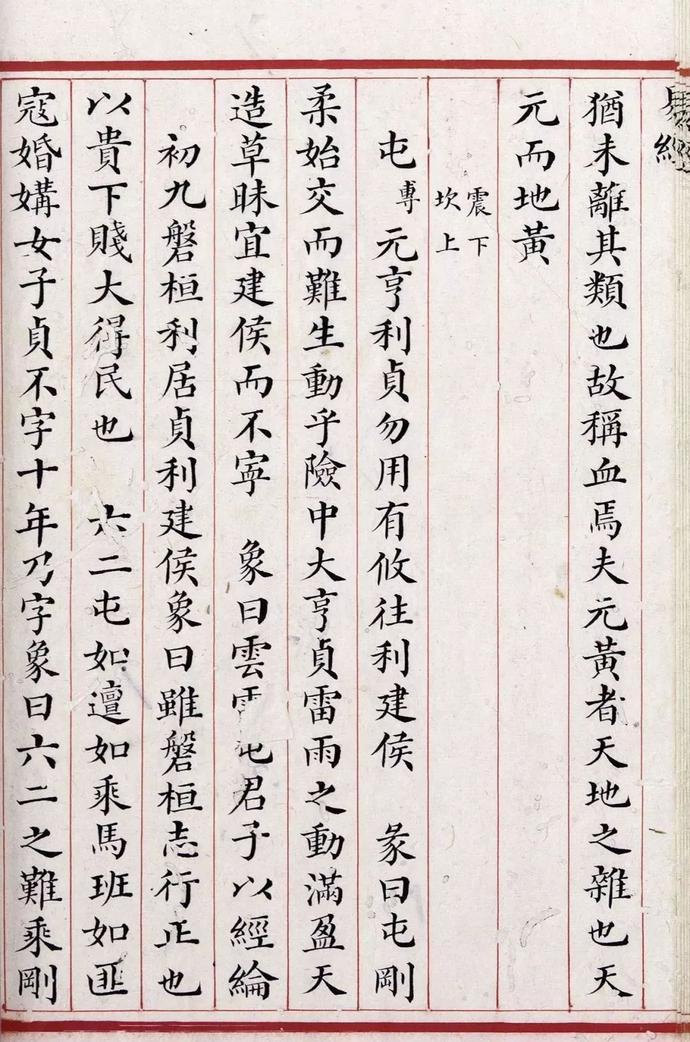 易經
猶未離其類也故稱血焉夫元黃者天地之雜也天
元而地黃
震下
坎上
屯專元亨利貞勿用有攸往利建侯 彖曰屯剛
柔始交而難生動乎險中大亨貞雷雨之動滿盈天
造草昧宜建侯而不寧 象曰雲屯君子以經綸
初九磐桓利居貞利建侯象曰雖磐桓志行正也
以貴下賤大得民也 六二屯如邅如乘馬班如匪
寇婚媾女子貞不字十年乃字象曰六二之難乘剛